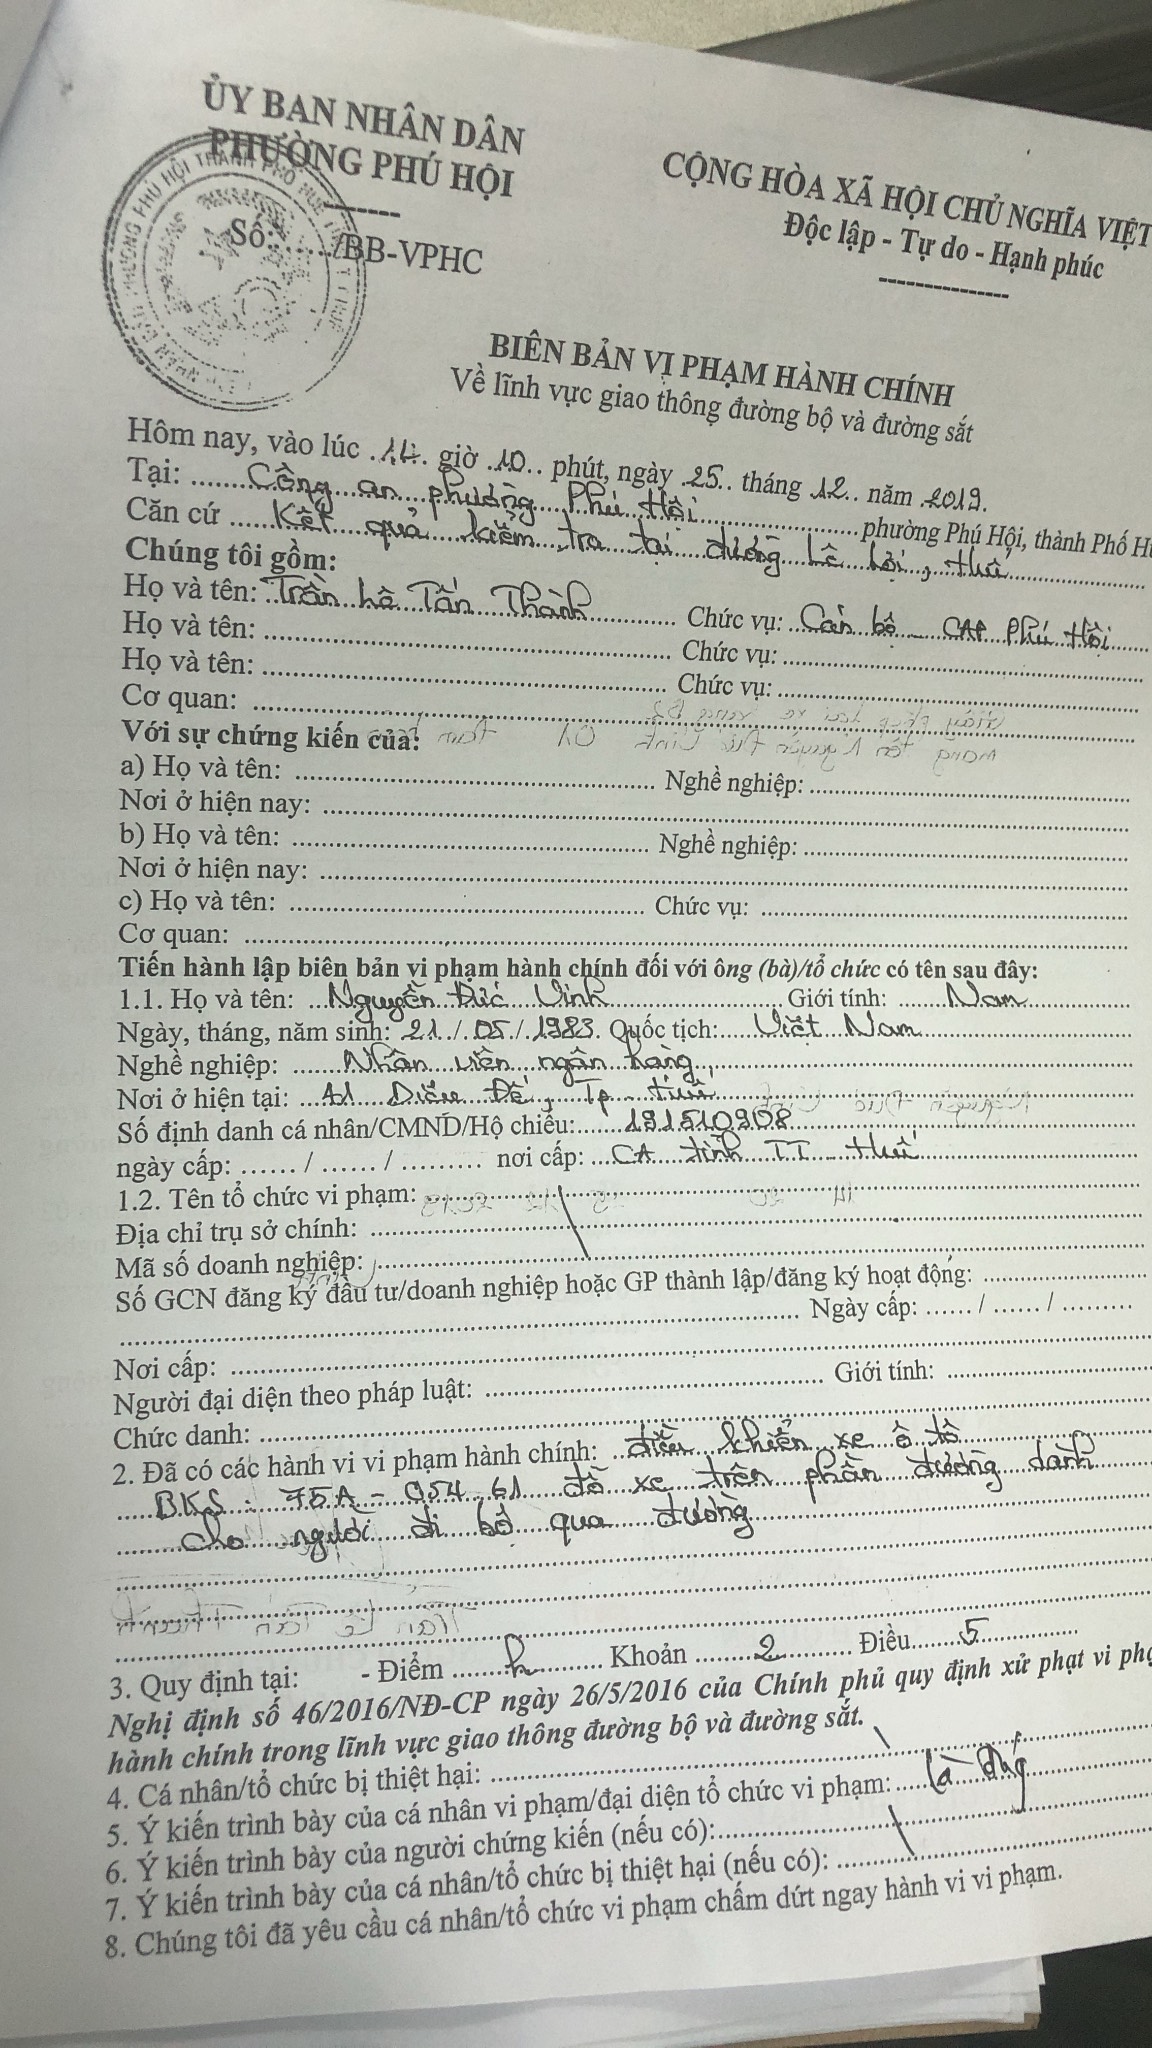 ỦY BAN NHÂN DÂN
PHƯỜNG PHÚ HỘI
Số:....../BB-VPHC
CỘNG HÒA XÃ HỘI CHỦ NGHĨA VIỆT
Độc lập - Tự do - Hạnh phúc
BIÊN BẢN VỊ PHẠM HÀNH CHÍNH
Về lĩnh vực giao thông đường bộ và đường sắt
Hôm nay, vào lúc 14 giờ 10 phút, ngày 25 tháng 12 năm 2019.
Tại: Công an phường Phú Hội phường Phú Hội, thành Phố H
Căn cứ Kết quả kiểm tra tại đường Lê Lợi, Huế
Chúng tôi gồm:
Họ và tên: Trần hò Tấn Thành Chức vụ: Cán bộ - CAP Phú Hội
Họ và tên: Chức vụ:
Họ và tên: Chức vụ:
Cơ quan:
Với sự chứng kiến của:
a) Họ và tên: Nghề nghiệp:
Nơi ở hiện nay:
b) Họ và tên: Nghề nghiệp:
Nơi ở hiện nay:
c) Họ và tên: Chức vụ:
Cơ quan:
Tiến hành lập biên bản vi phạm hành chính đối với ông (bà)/tổ chức có tên sau đây:
1.1. Họ và tên: Nguyễn Đức Vinh Giới tính: Nam
Ngày, tháng, năm sinh: 21/05/1983. Quốc tịch: Việt Nam
Nghề nghiệp: Nhân viên ngân hàng,
Nơi ở hiện tại: A1 Diệu Đế, Tp - Huế
Số định danh cá nhân/CMND/Hộ chiếu: 191510908
ngày cấp: ...... / ...... / ......... nơi cấp: CA tỉnh TT Huế
1.2. Tên tổ chức vi phạm:
Địa chỉ trụ sở chính:
Mã số doanh nghiệp:
Số GCN đăng ký đầu tư/doanh nghiệp hoặc GP thành lập/đăng ký hoạt động:
Ngày cấp: ...... / ...... / .........
Nơi cấp:
Người đại diện theo pháp luật: Giới tính:
Chức danh:
2. Đã có các hành vi vi phạm hành chính: điều khiển xe ô tô
BKS: 75A - 054 61 đỗ xe trên phần đường dành
cho người đi bộ qua đường
3. Quy định tại: - Điểm h Khoản 2 Điều 5
Nghị định số 46/2016/NĐ-CP ngày 26/5/2016 của Chính phủ quy định xử phạt vi phạ
hành chính trong lĩnh vực giao thông đường bộ và đường sắt.
4. Cá nhân/tổ chức bị thiệt hại:
5. Ý kiến trình bày của cá nhân vi phạm/đại diện tổ chức vi phạm: là đúng
6. Ý kiến trình bày của người chứng kiến (nếu có):
7. Ý kiến trình bày của cá nhân/tổ chức bị thiệt hại (nếu có):
8. Chúng tôi đã yêu cầu cá nhân/tổ chức vi phạm chấm dứt ngay hành vi vi phạm.